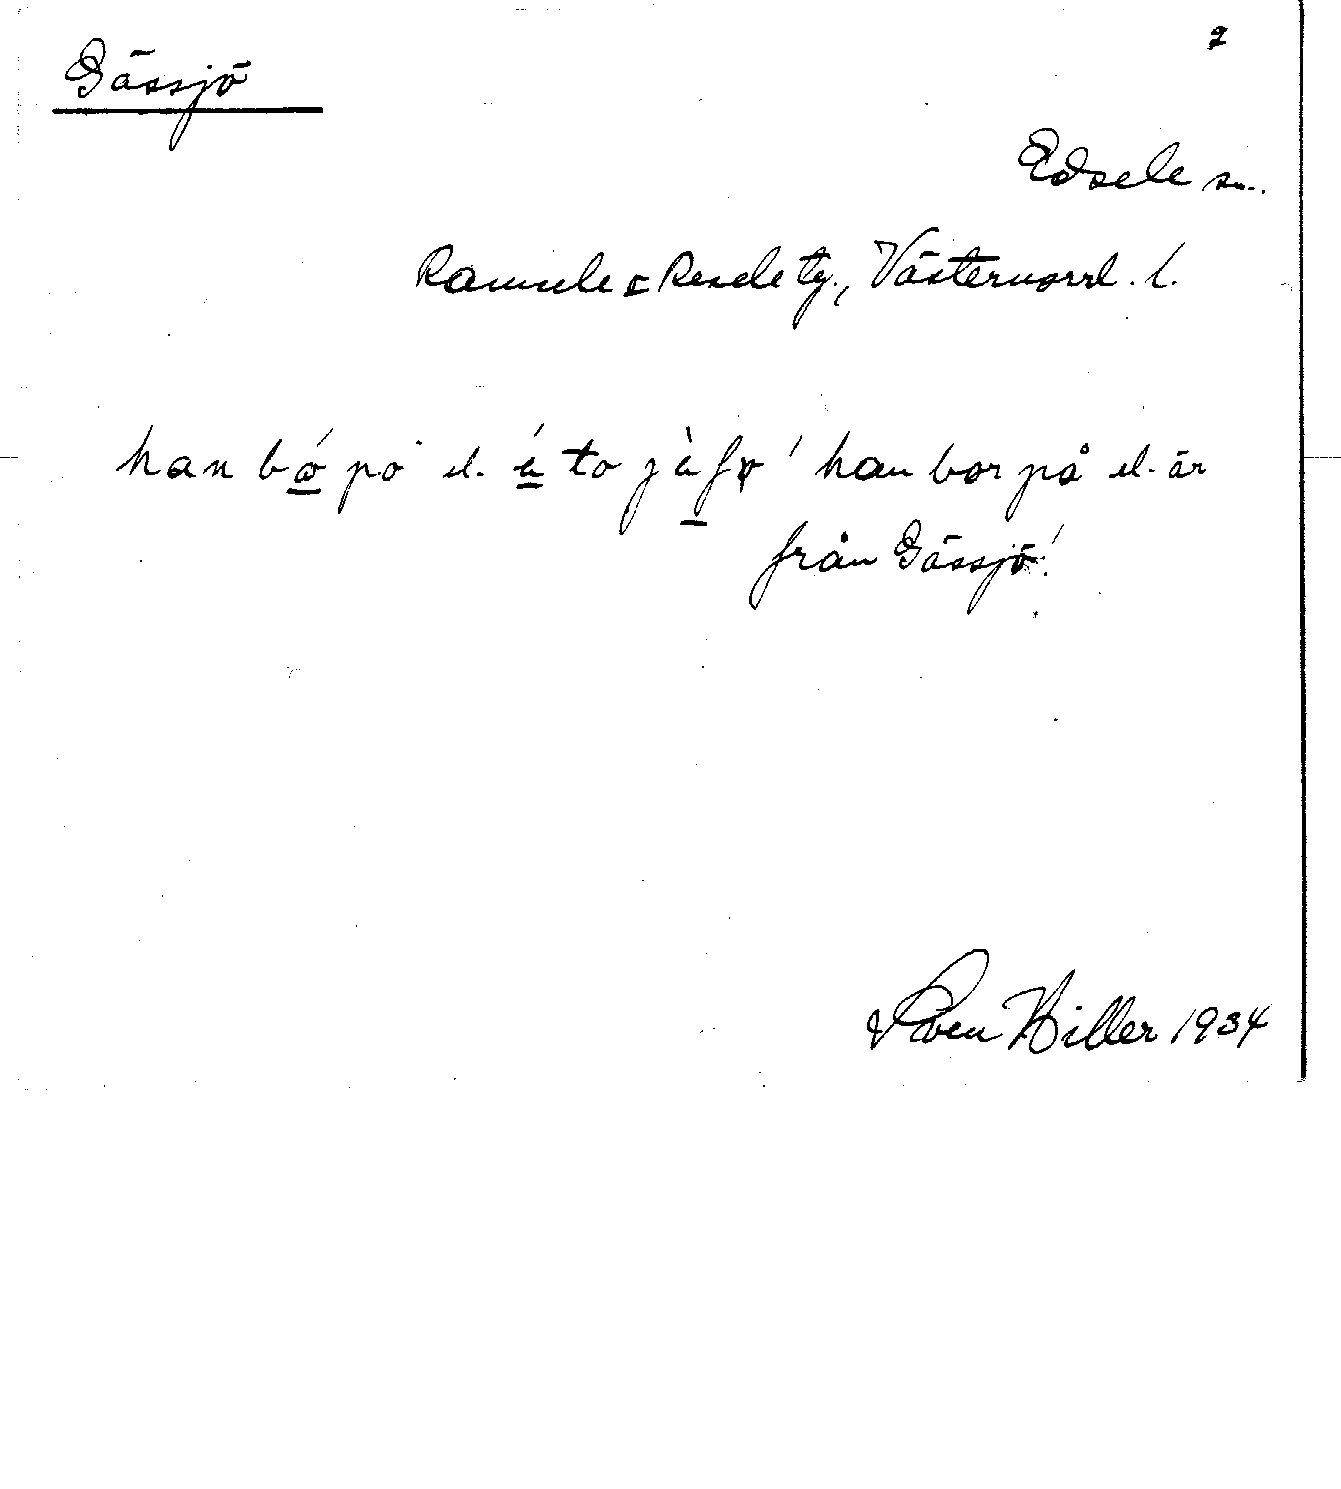 2
Gässjö
Edsele sn.
Ramsele o Resele tg., Västernorrl. l.
han bó̲ po el. á̲ to jàʃø ' han bor på el. är
från Gässjö'.
Sven Hiller 1934